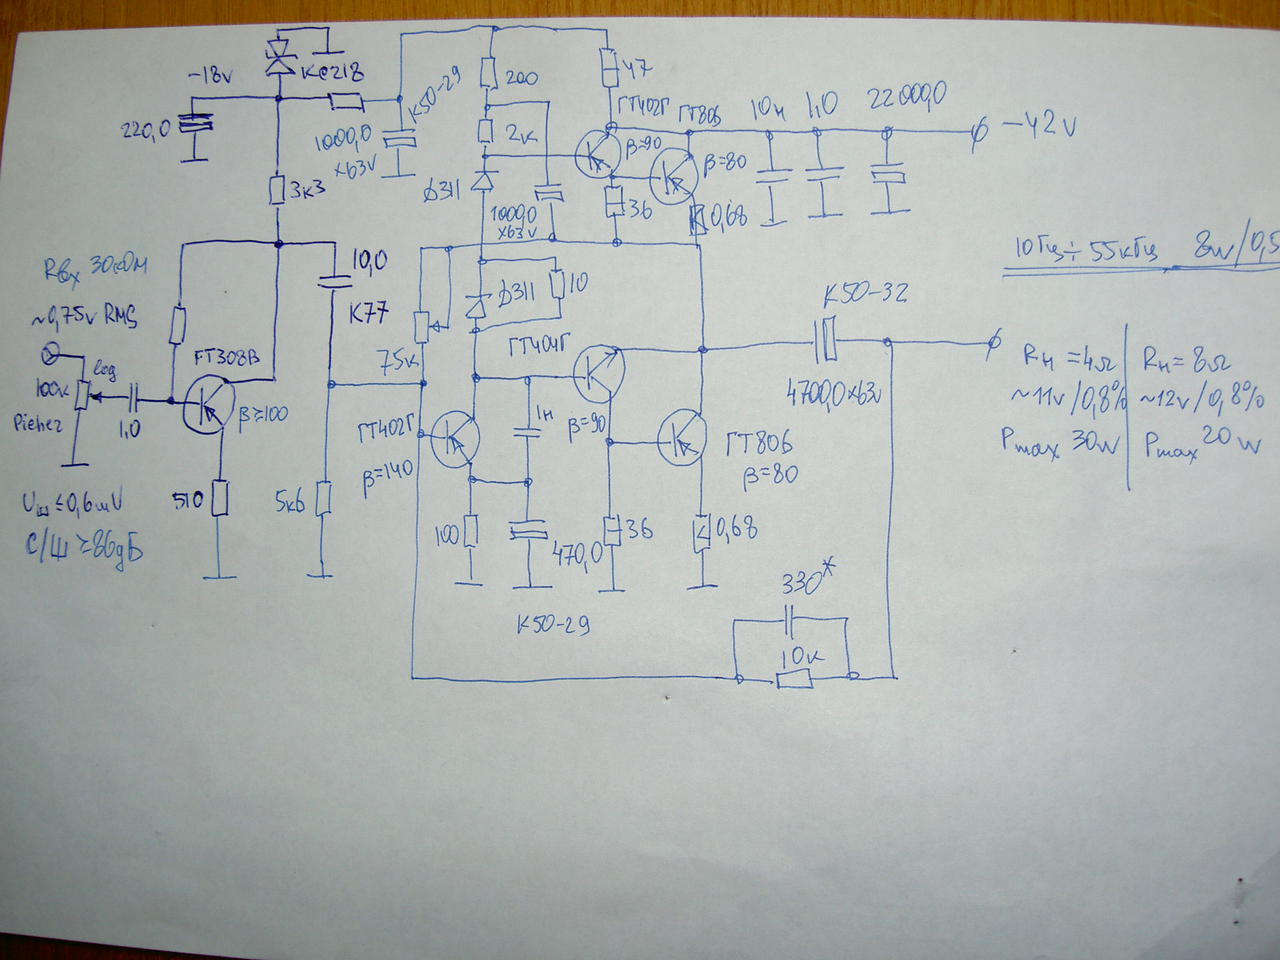 -18v
КС218
220,0
1000,0
×63v
K50-29
200
47
2к
ГТ402Г
β=90
ГТ806
β=80
10н
1,0
22000,0
-42v
3к3
Д311
1000,0
×63v
36
0,68
10Гц÷55кГц 8w/0,5
Rвх 30кОм
~0,75v RMS
10,0
К77
Д311
10
К50-32
4700,0×63v
log
100к
Pieher
1,0
FT308B
β≥100
75к
ГТ404Г
β=90
1н
ГТ402Г
β=140
ГТ806
β=80
Rн=4Ω
~11v/0,8%
Pmax 30w
Rн=8Ω
~12v/0,8%
Pmax 20w
Uш≤0,6mV
С/Ш ≥86дБ
510
5к6
100
470,0
36
0,68
К50-29
330*
10к